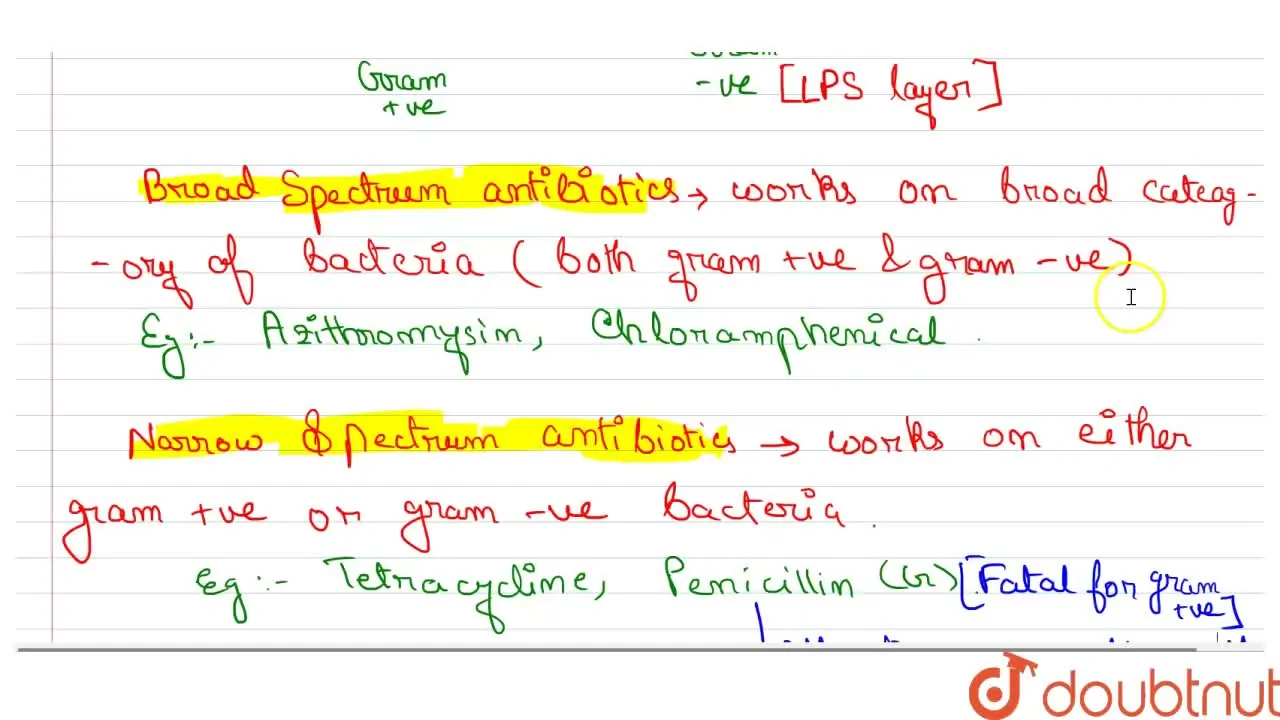 Gram
+ve
-ve [LPS layer]
Broad Spectrum antibiotics → works on broad categ-
-ory of bacteria (both gram +ve & gram -ve)
Eg:- Azithromysin, Chloramphenical.
Narrow Spectrum antibiotics → works on either
gram +ve or gram -ve bacteria.
Eg:- Tetracycline, Penicillin (G) [Fatal for gram
+ve]
doubtnut